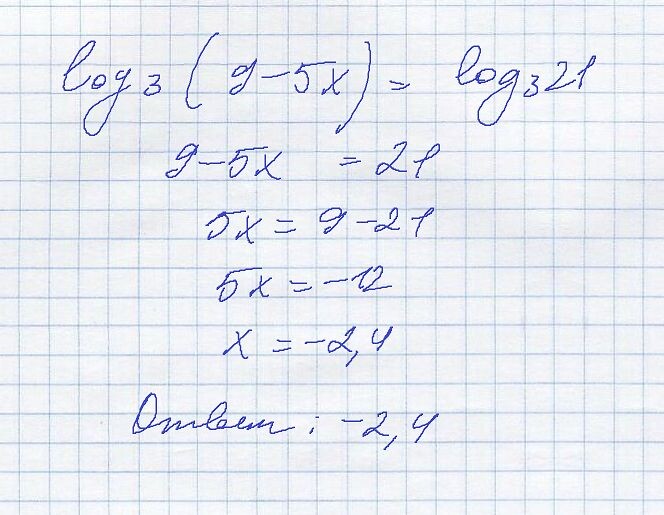 log₃(9-5x) = log₃21
9-5x = 21
5x = 9-21
5x = -12
x = -2,4
Ответ: -2,4